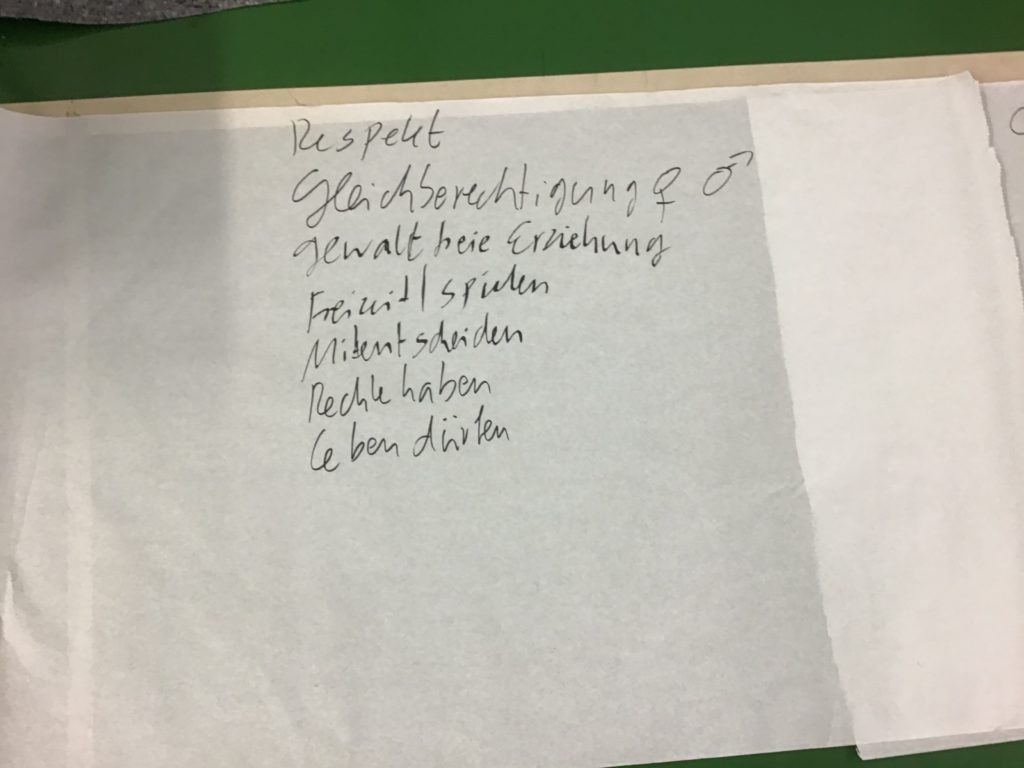 Respekt
Gleichberechtigung ♀ ♂
gewaltfreie Erziehung
Freizeit / spielen
Mitentscheiden
Rechte haben
Leben dürfen